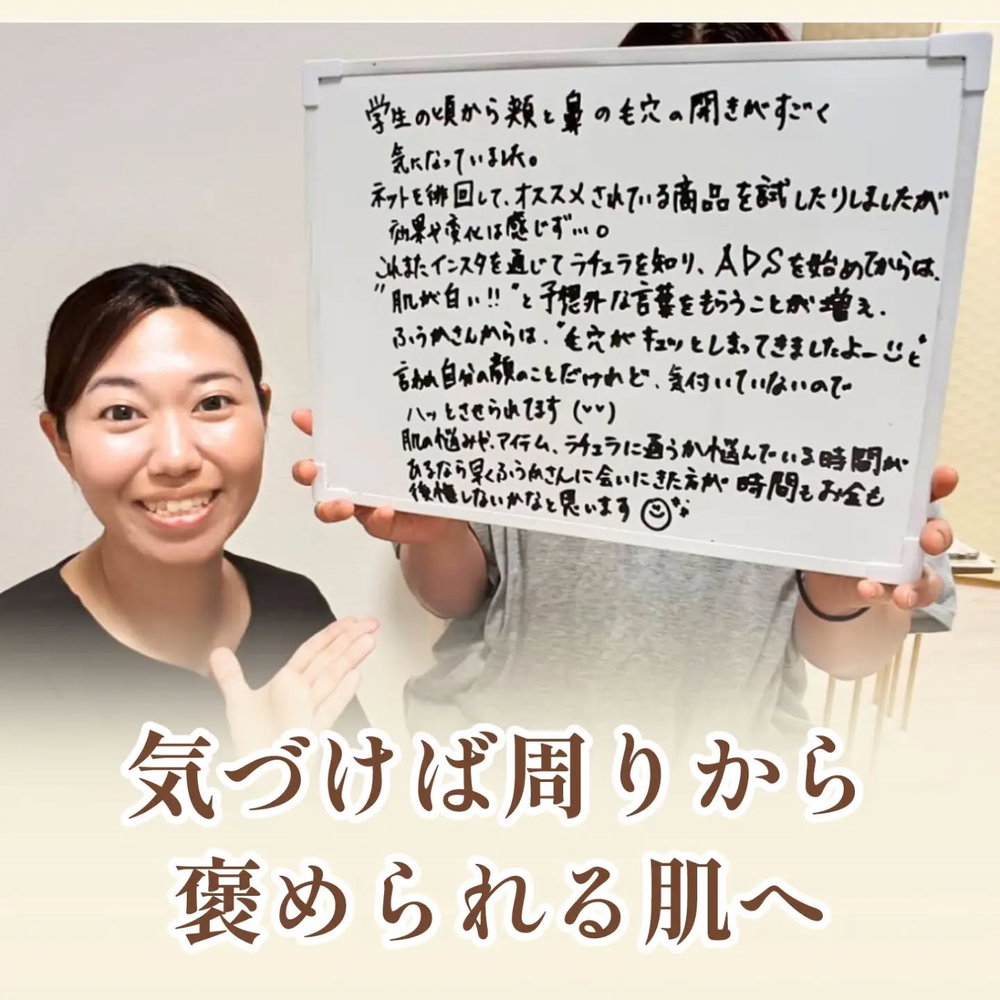 学生の頃から頬と鼻の毛穴の開きがすごく
気になっていました。
ネットを徘回して、オススメされている商品を試したりしましたが
効果や変化は感じず…。
これまたインスタを通じてラチュラを知り、ADSを始めてからは、
"肌が白い!!"と予想外な言葉をもらうことが増え、
ふうかさんからは、"毛穴がキュッとしまってきましたよー"と
言われ自分の顔のことだけれど、気付いていないので
ハッとさせられてます
肌の悩みや、アイテム、ラチュラに通うか悩んでいる時間が
あるなら早くふうかさんに会いにきた方が時間もお金も
後悔しないかなと思います
気づけば周りから
褒められる肌へ